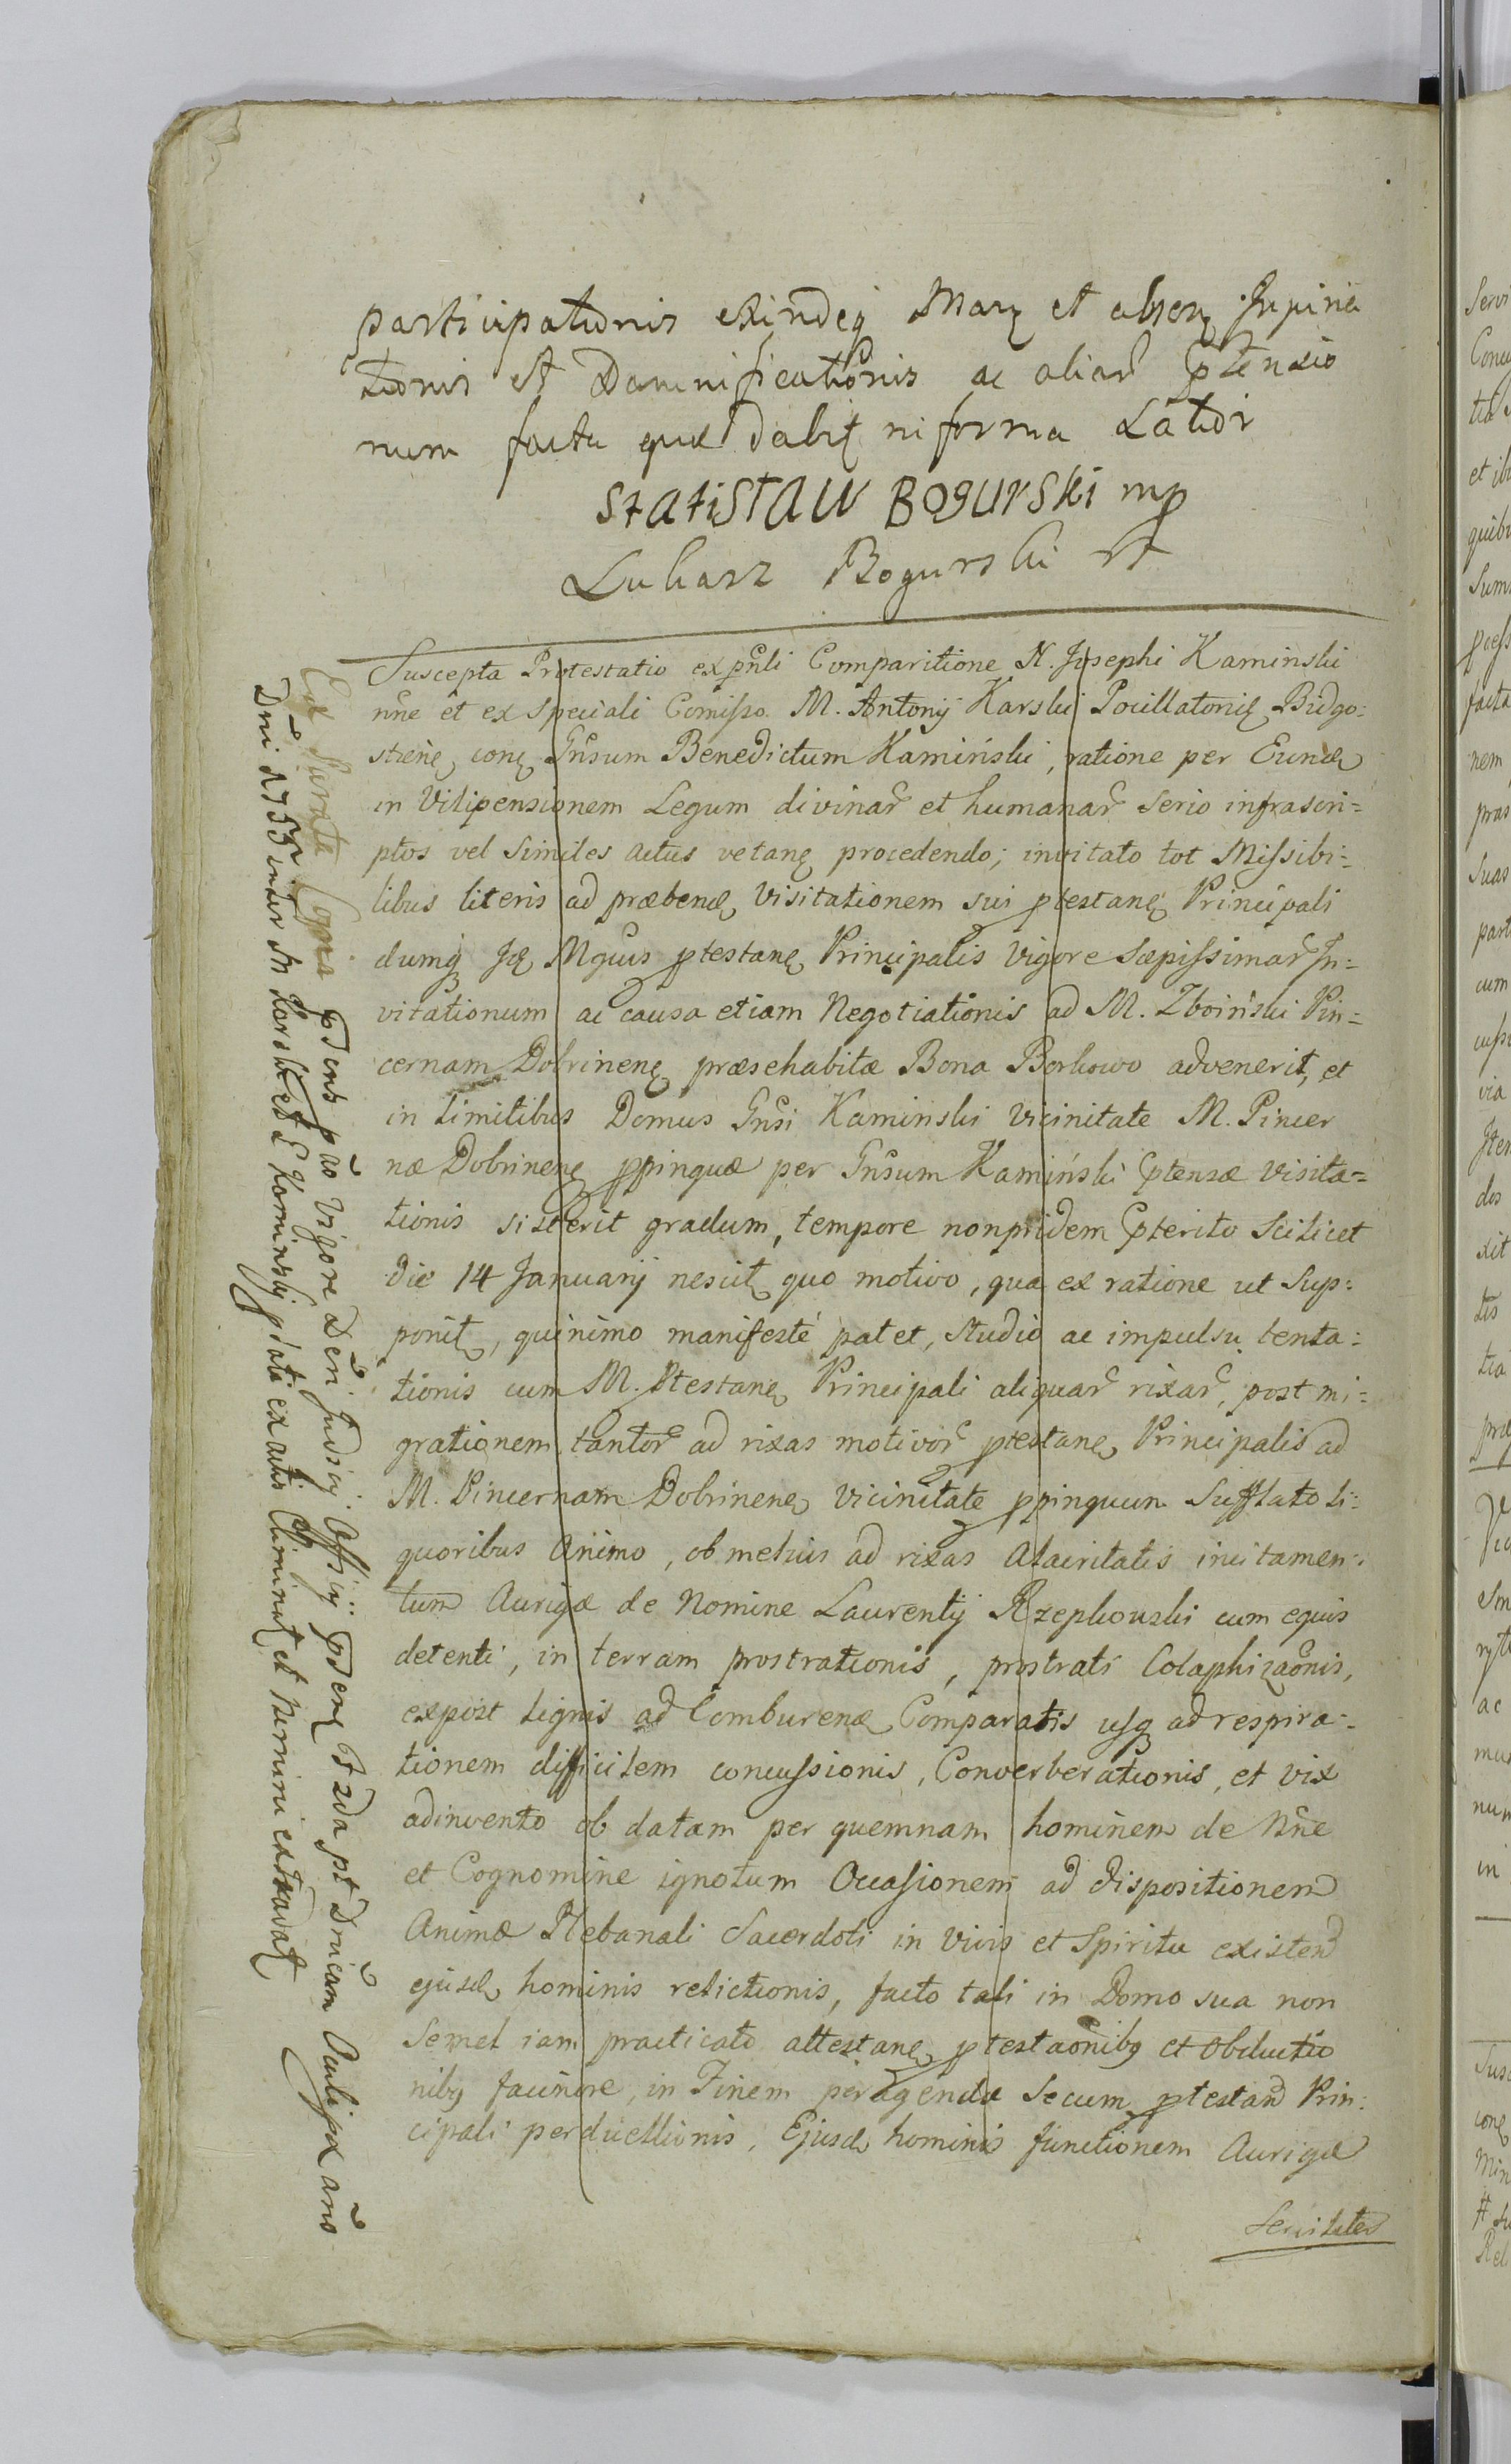 participationis exindeq Marq et absenq Inpina
tionis et Damnificationis ac aliar Ptensio
num facta quæ dabit in forma Latior
StatiStaW BOgUrSki mp
Lukasz Bogurski rt
Suscepta Protestatio ex pnli Comparitione N. Josephi Kaminski
nne et ex speciali Comisso M. Antonij Karski Pocillatoris Bidgo:
stiene conq Gnsum Benedictum Kamiński, ratione per Eundq
in Vilipensionem Legum divinar et humanar Serio infrascri=
ptos vel Similes actus vetanq procedendo; invitato tot Missibi=
libus literis ad præbendq Visitationem sui ptestanq Principali
dumq Idq Mgcus ptestanq Principalis Vigore Sæpissimar In=
vitationum ac causa etiam Negotiationis ad M. Zboiński Pin=
cernam Dobrinenq præsehabitæ Bona Borkowo advenerit, et
in Limitibus Domus Gnsi Kaminski Vicinitate M. Pincer
næ Dobrinenq ppinquæ per Gnsum Kamiński Ptensæ Visita=
tionis sisterit gradum, tempore nonpridem Pterito Scilicet
die 14 Januarij nescitq quo motivo, qua ex ratione ut Sup:
ponitq, quinimo manifesté patet, Studio ac impulsu tenta:
tionis cum M. Ptestanq Principali aliquar rixar, post mi:
grationem tantor ad rixas motivor ptestanq Principalis ad
M. Pincernam Dobrinenq Vicinitate ppinquum Sufflato li:
quoribus Animo, ob melius ad rixas Alacritatis incitamen:
tum Aurigæ de Nomine Laurentij Rzepkowski cum equis
detenti, in terram prostrationis, prostrati Colaphizaonis,
expost Lignis ad Comburendq Comparatis usq ad respira:
tionem difficilem concussionis, Converberationis, et vix
adinvento ob datam per quemnam hominem de Nne
et Cognomine ignotum Occasionem ad dispositionem
Animæ Plebanali Sacerdoti in Vivis et Spiritu existend
ejusdq hominis relictionis, facto tali in Domo sua non
Semel iam practicato attestanq ptestaonibq et obductio
nibq facinore, in Finem peragendæ Secum ptestand Prin:
cipali perduellionis, Ejusdq hominis functionem Aurigæ
Servientes
Ex Parata Copia Pdenti pao Vigore Dni Judicij Officij Pdenq F 2da pt Dnicam Oculi px ano
Dni 1753 inter M Karski et G Kaminskij pdati ex actis Eliminatq et Nemini extradatq